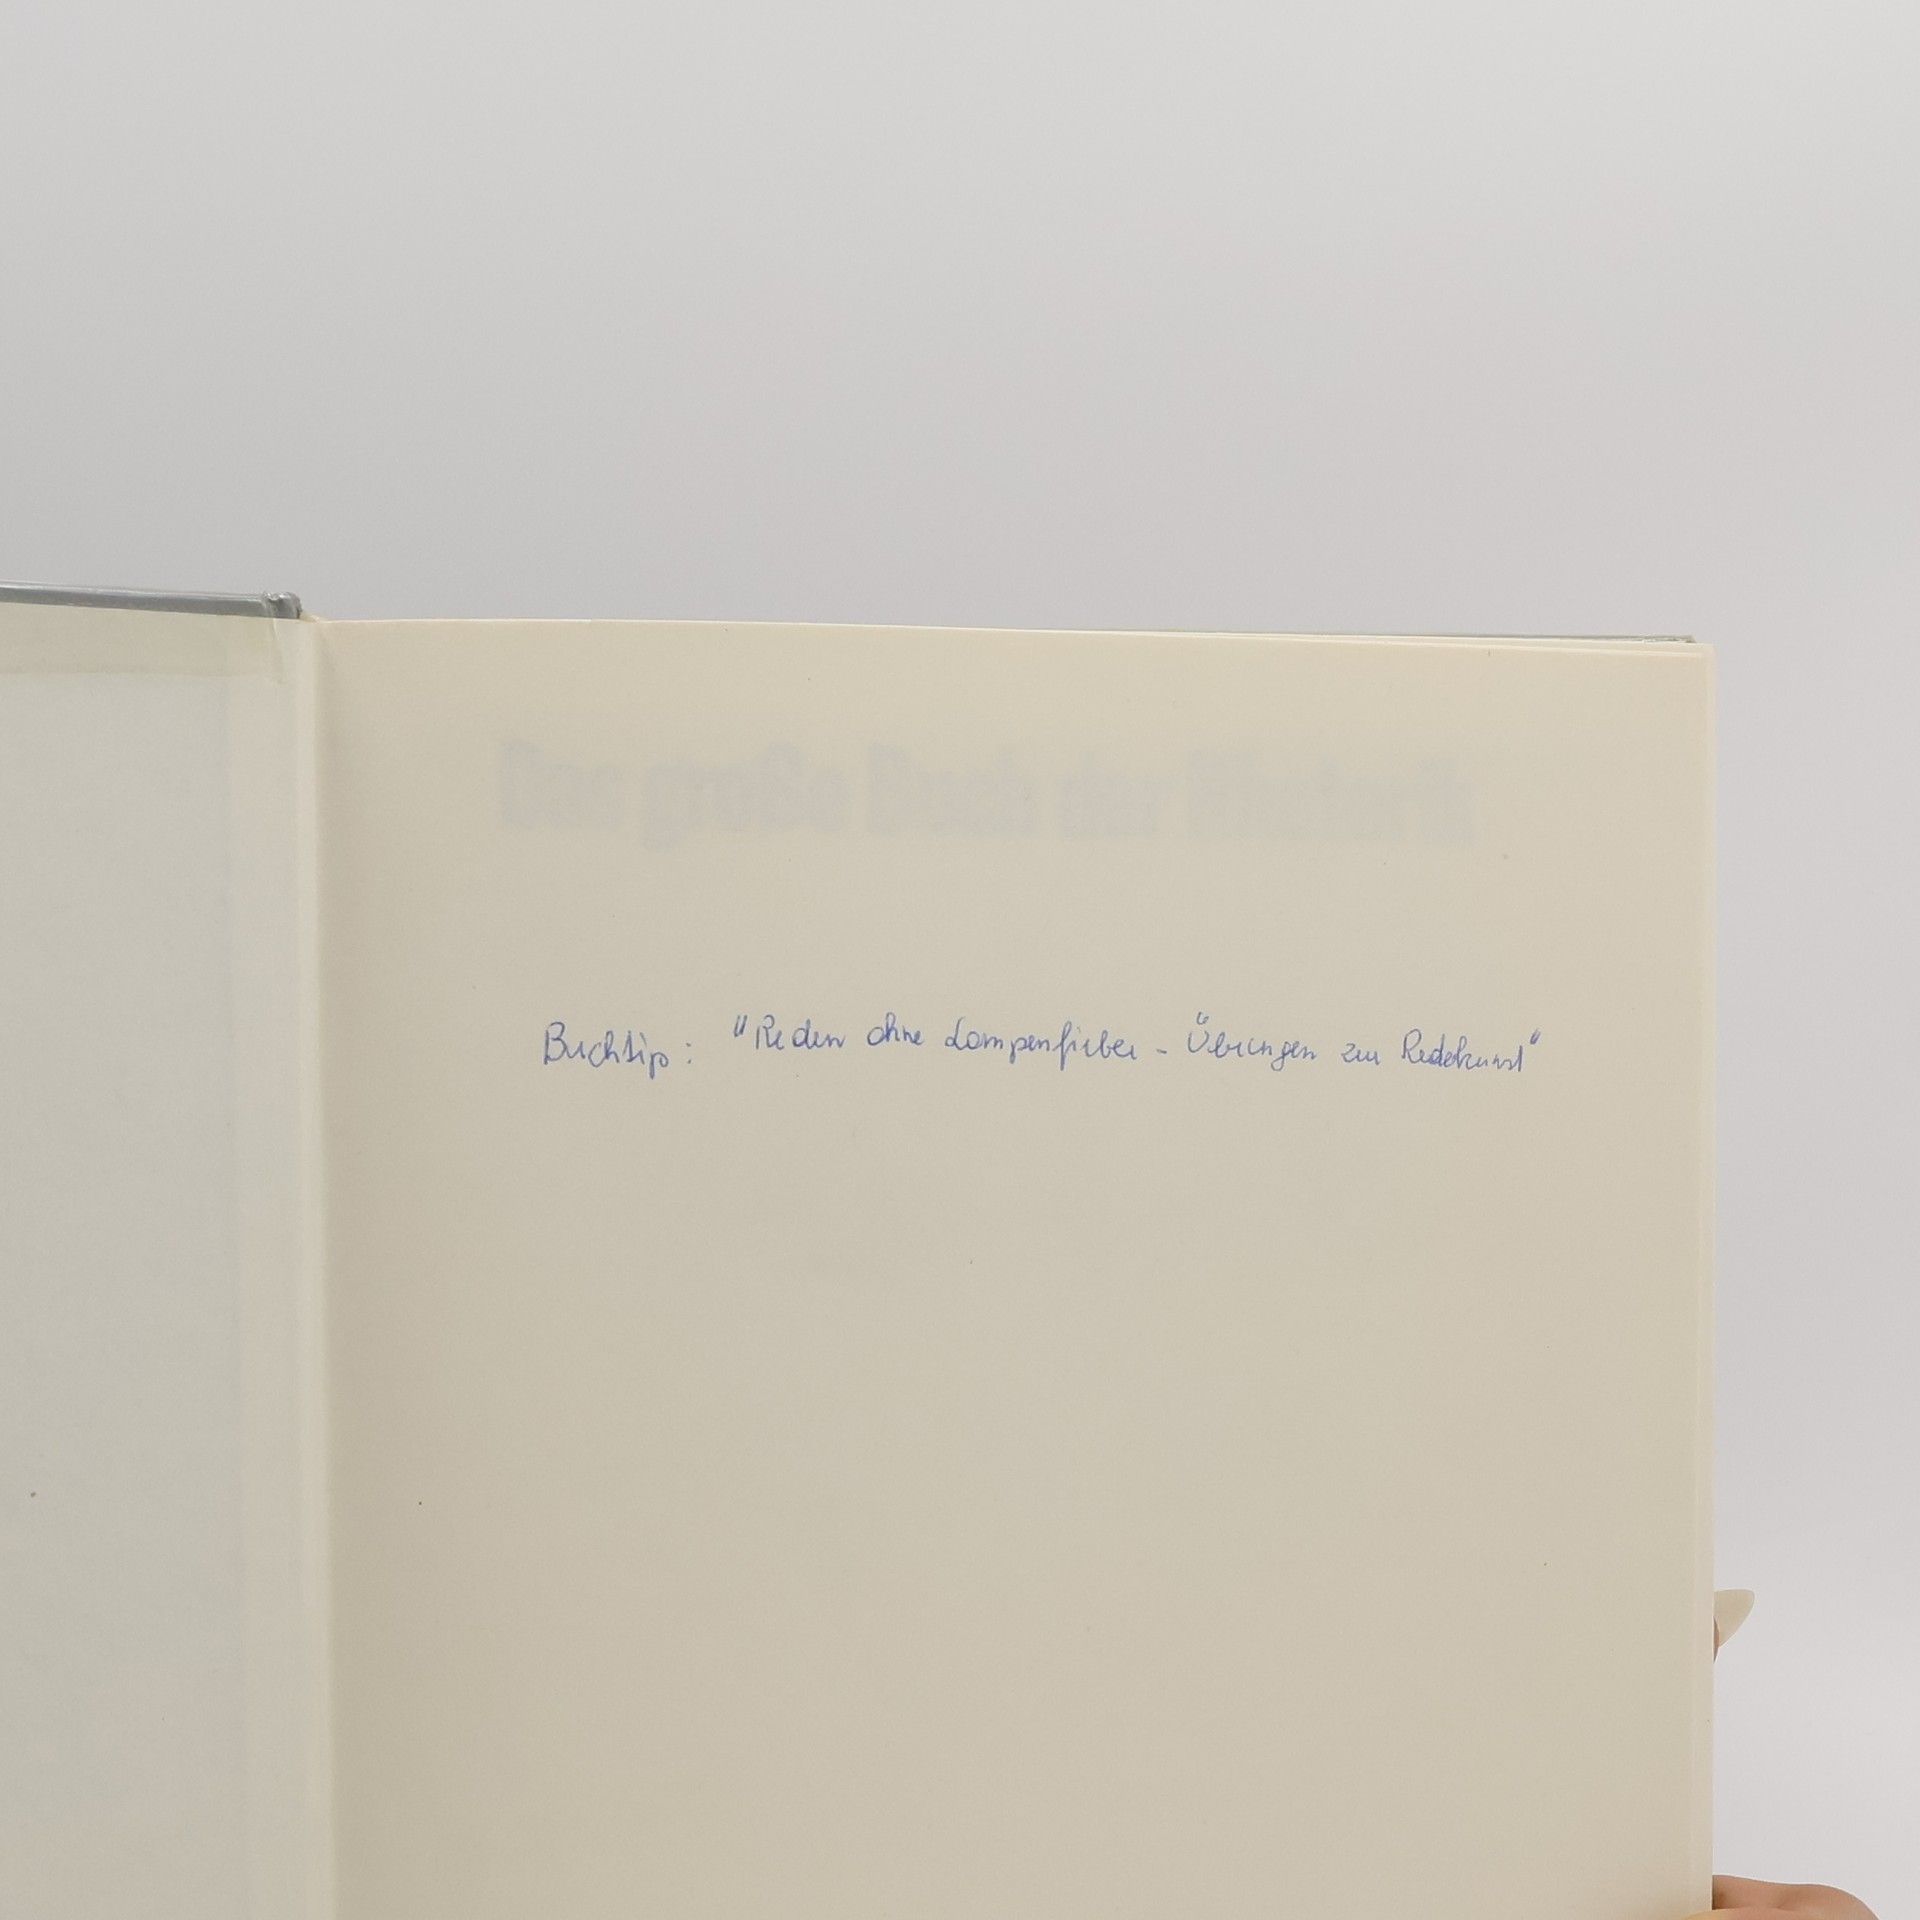 Das große Buch der Rhetorik
Buchtip: "Reden ohne Lampenfieber - Übungen zur Redekunst"